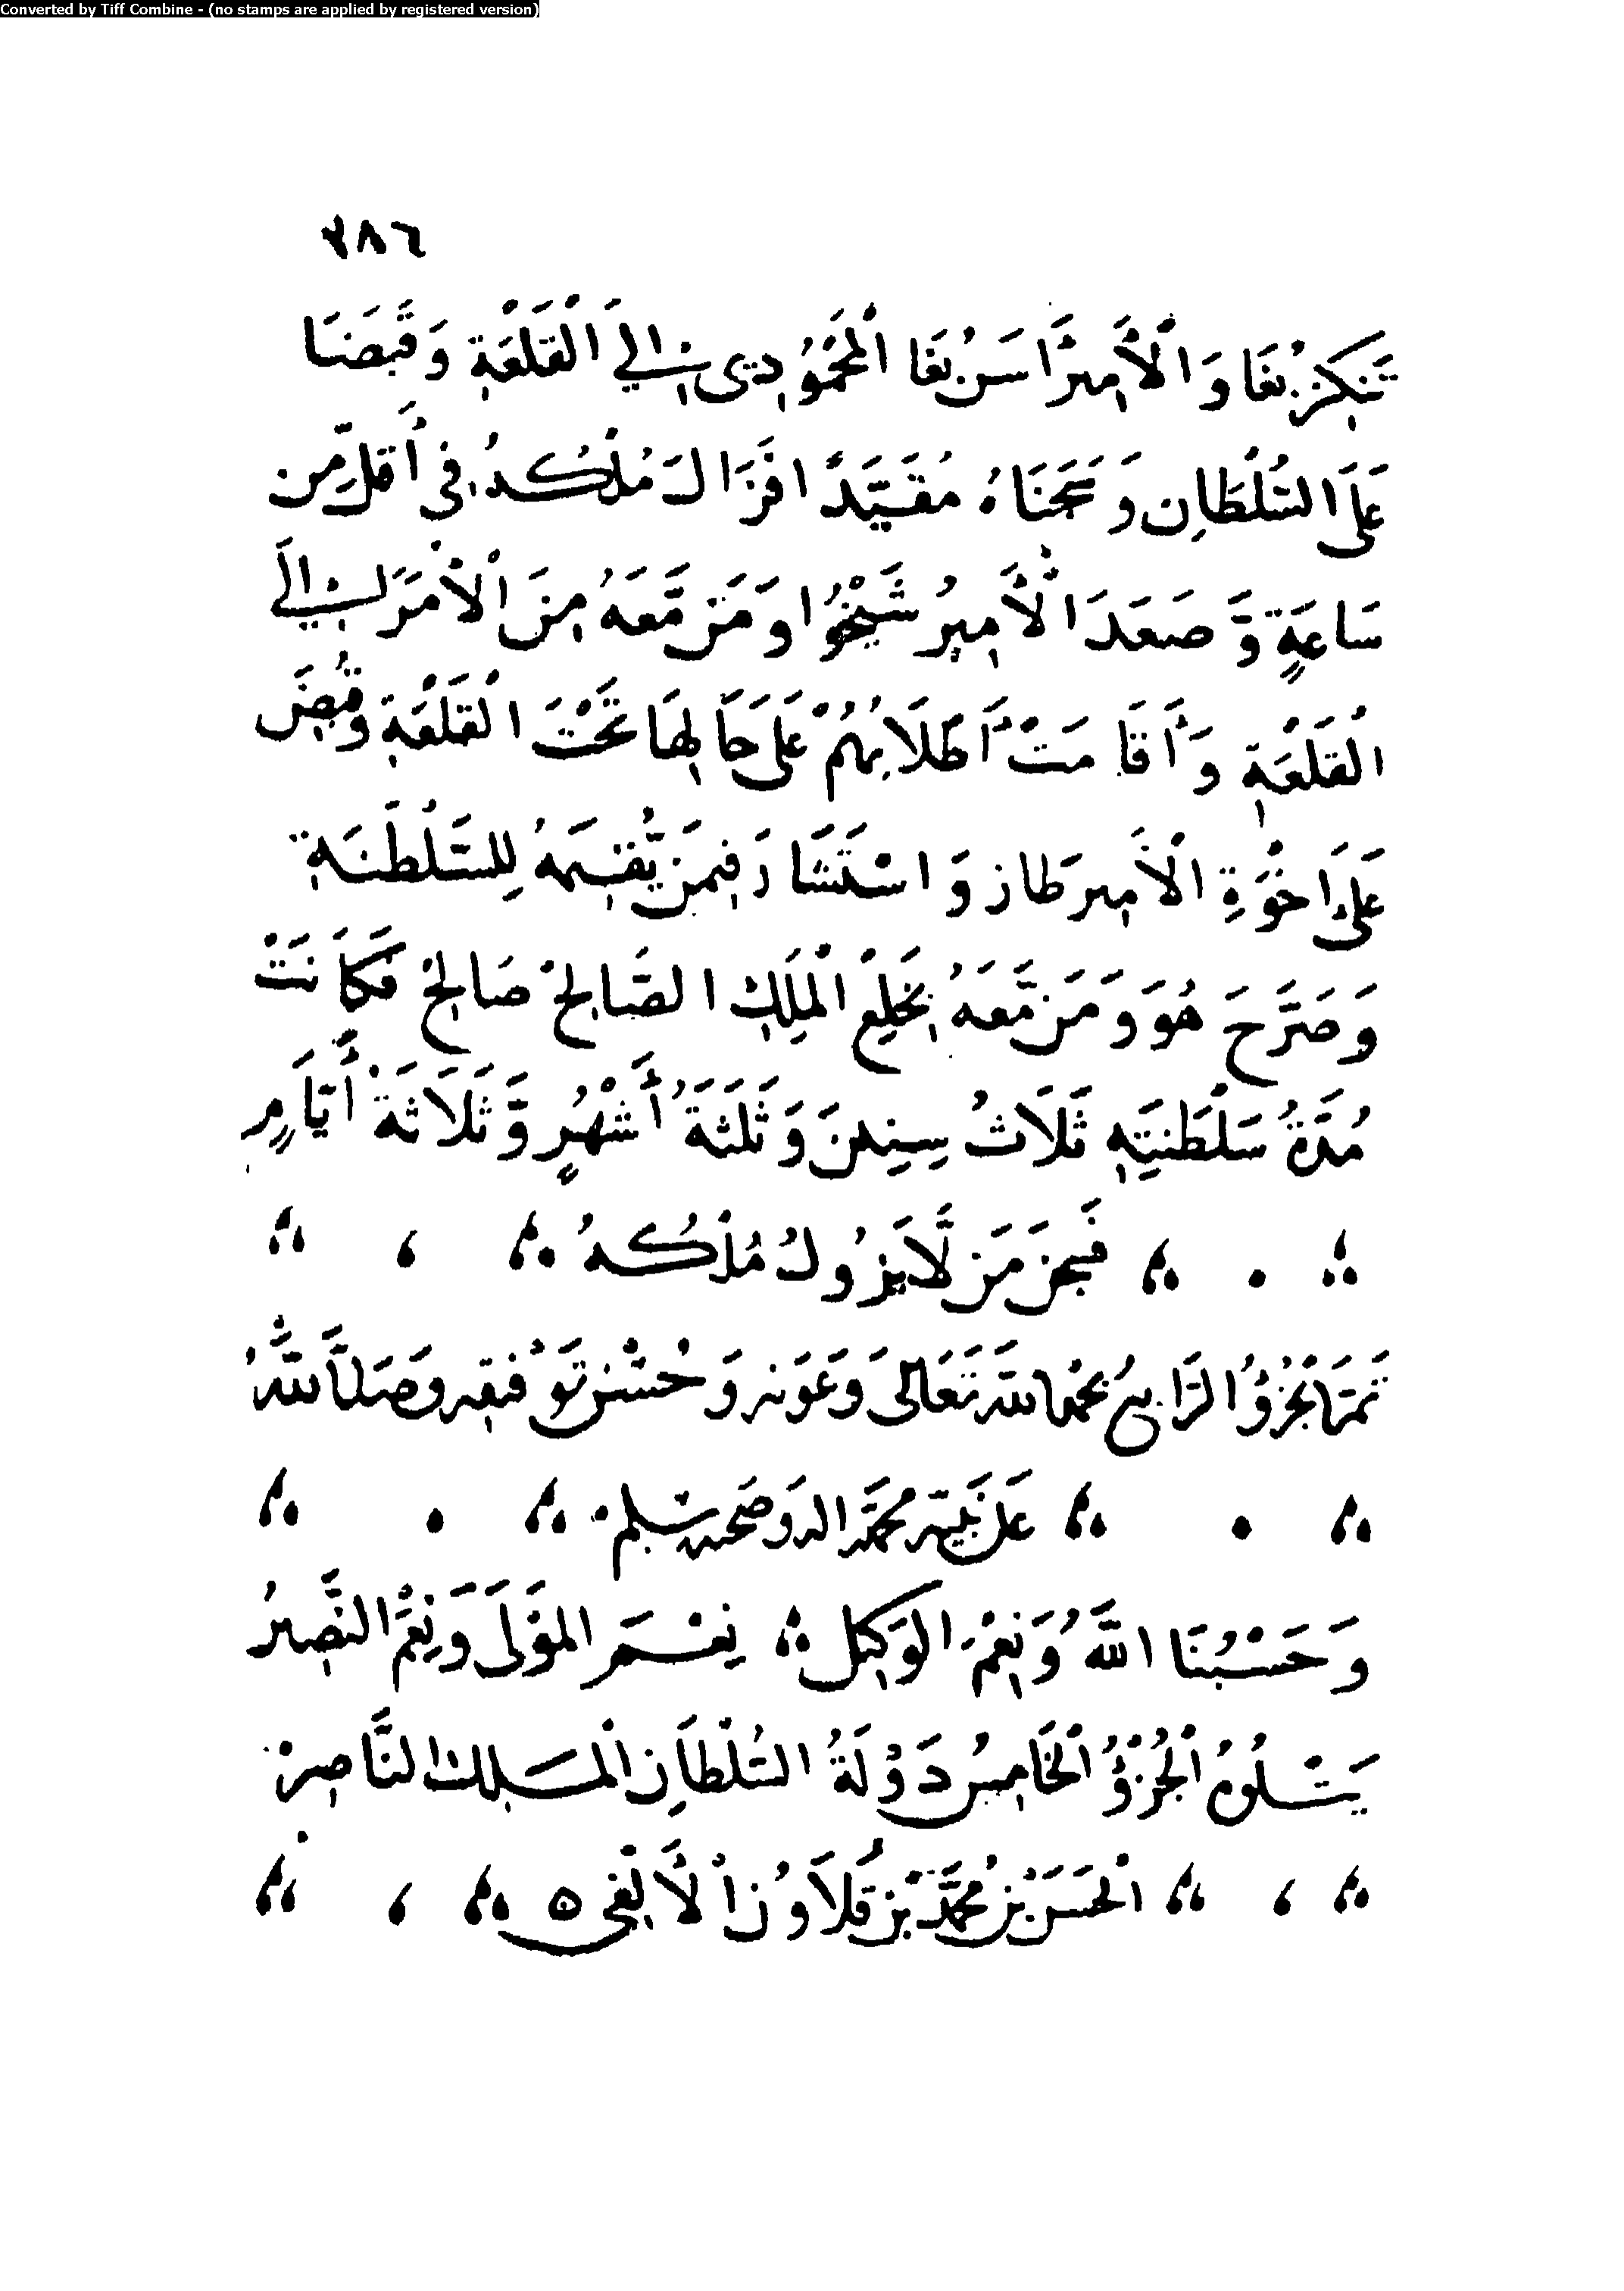 Converted by Tiff Combine - (no stamps are applied by registered version)
٢٨٦
تَنكِزبُغَا وَالْأَمِيرَ اسَنبُغَا الْمَحْمُودِى إِلَى الْقَلْعَةِ وَقَبَضَا
عَلَى السُّلْطَانِ وَسَجَنَاهُ مُقَيَّدًا فَزَالَ مُلْكُهُ فِى أَقَلَّ مِّن
سَاعَةٍ وَّصَعَدَ الْأَمِيرُ شَيْخُوا وَمَن مَّعَهُ مِنَ الْأُمَرَاءِ إِلَى
الْقَلْعَةِ وَأَقَامَتْ أَطْلَابُهُمْ عَلَى حَالِهَا تَحْتَ الْقَلْعَةِ وَقُبِضَ
عَلَى إِخْوَةِ الْأَمِيرِ طَاز وَاسْتَشَارَ فِيمَن يُّقِيمَهُ لِلسَّلْطَنَةِ
وَصَرَّحَ هُوَ وَمَن مَّعَهُ بِخَلْعِ الْمَلِكِ الصَّالِحْ صَالِحْ فَكَانَتْ
مُدَّةُ سَلْطَنَتِهِ ثَلَاثُ سِنِينَ وَثَلَثَةَ أَشْهُرٍ وَّثَلَاثَةَ أَيَّامٍ
فَسُبْحٰنَ مَن لَّا يَزُولُ مُلْكُهُ
تَمَّ الجُزْؤُ الرَّابِعُ بِحَمْدِ اللهِ تَعَالَى وَعَوْنِهِ وَحُسْنِ تَوْفِيقِهِ وَصَلَّى اللهُ
عَلَى نَبِيِّهِ مُحَمَّدٍ وَاله وَصَحْبِهِ وَسَلم
وَحَسْبُنَا اللَّهُ وَنِعْمَ الوَكِيل نِعْمَ المَوْلَى وَنِعْمَ النَّصِيرُ
يَتْلُوهُ الْجُزْؤُ الْخَامِسُ دَوْلَةُ السُّلْطَانِ الْمَلِك النَّاصِرْ
الْحَسَنْ بْنِ مُحَمَّدْ بْنِ قَلَاوُن الْأَلْفِى ه